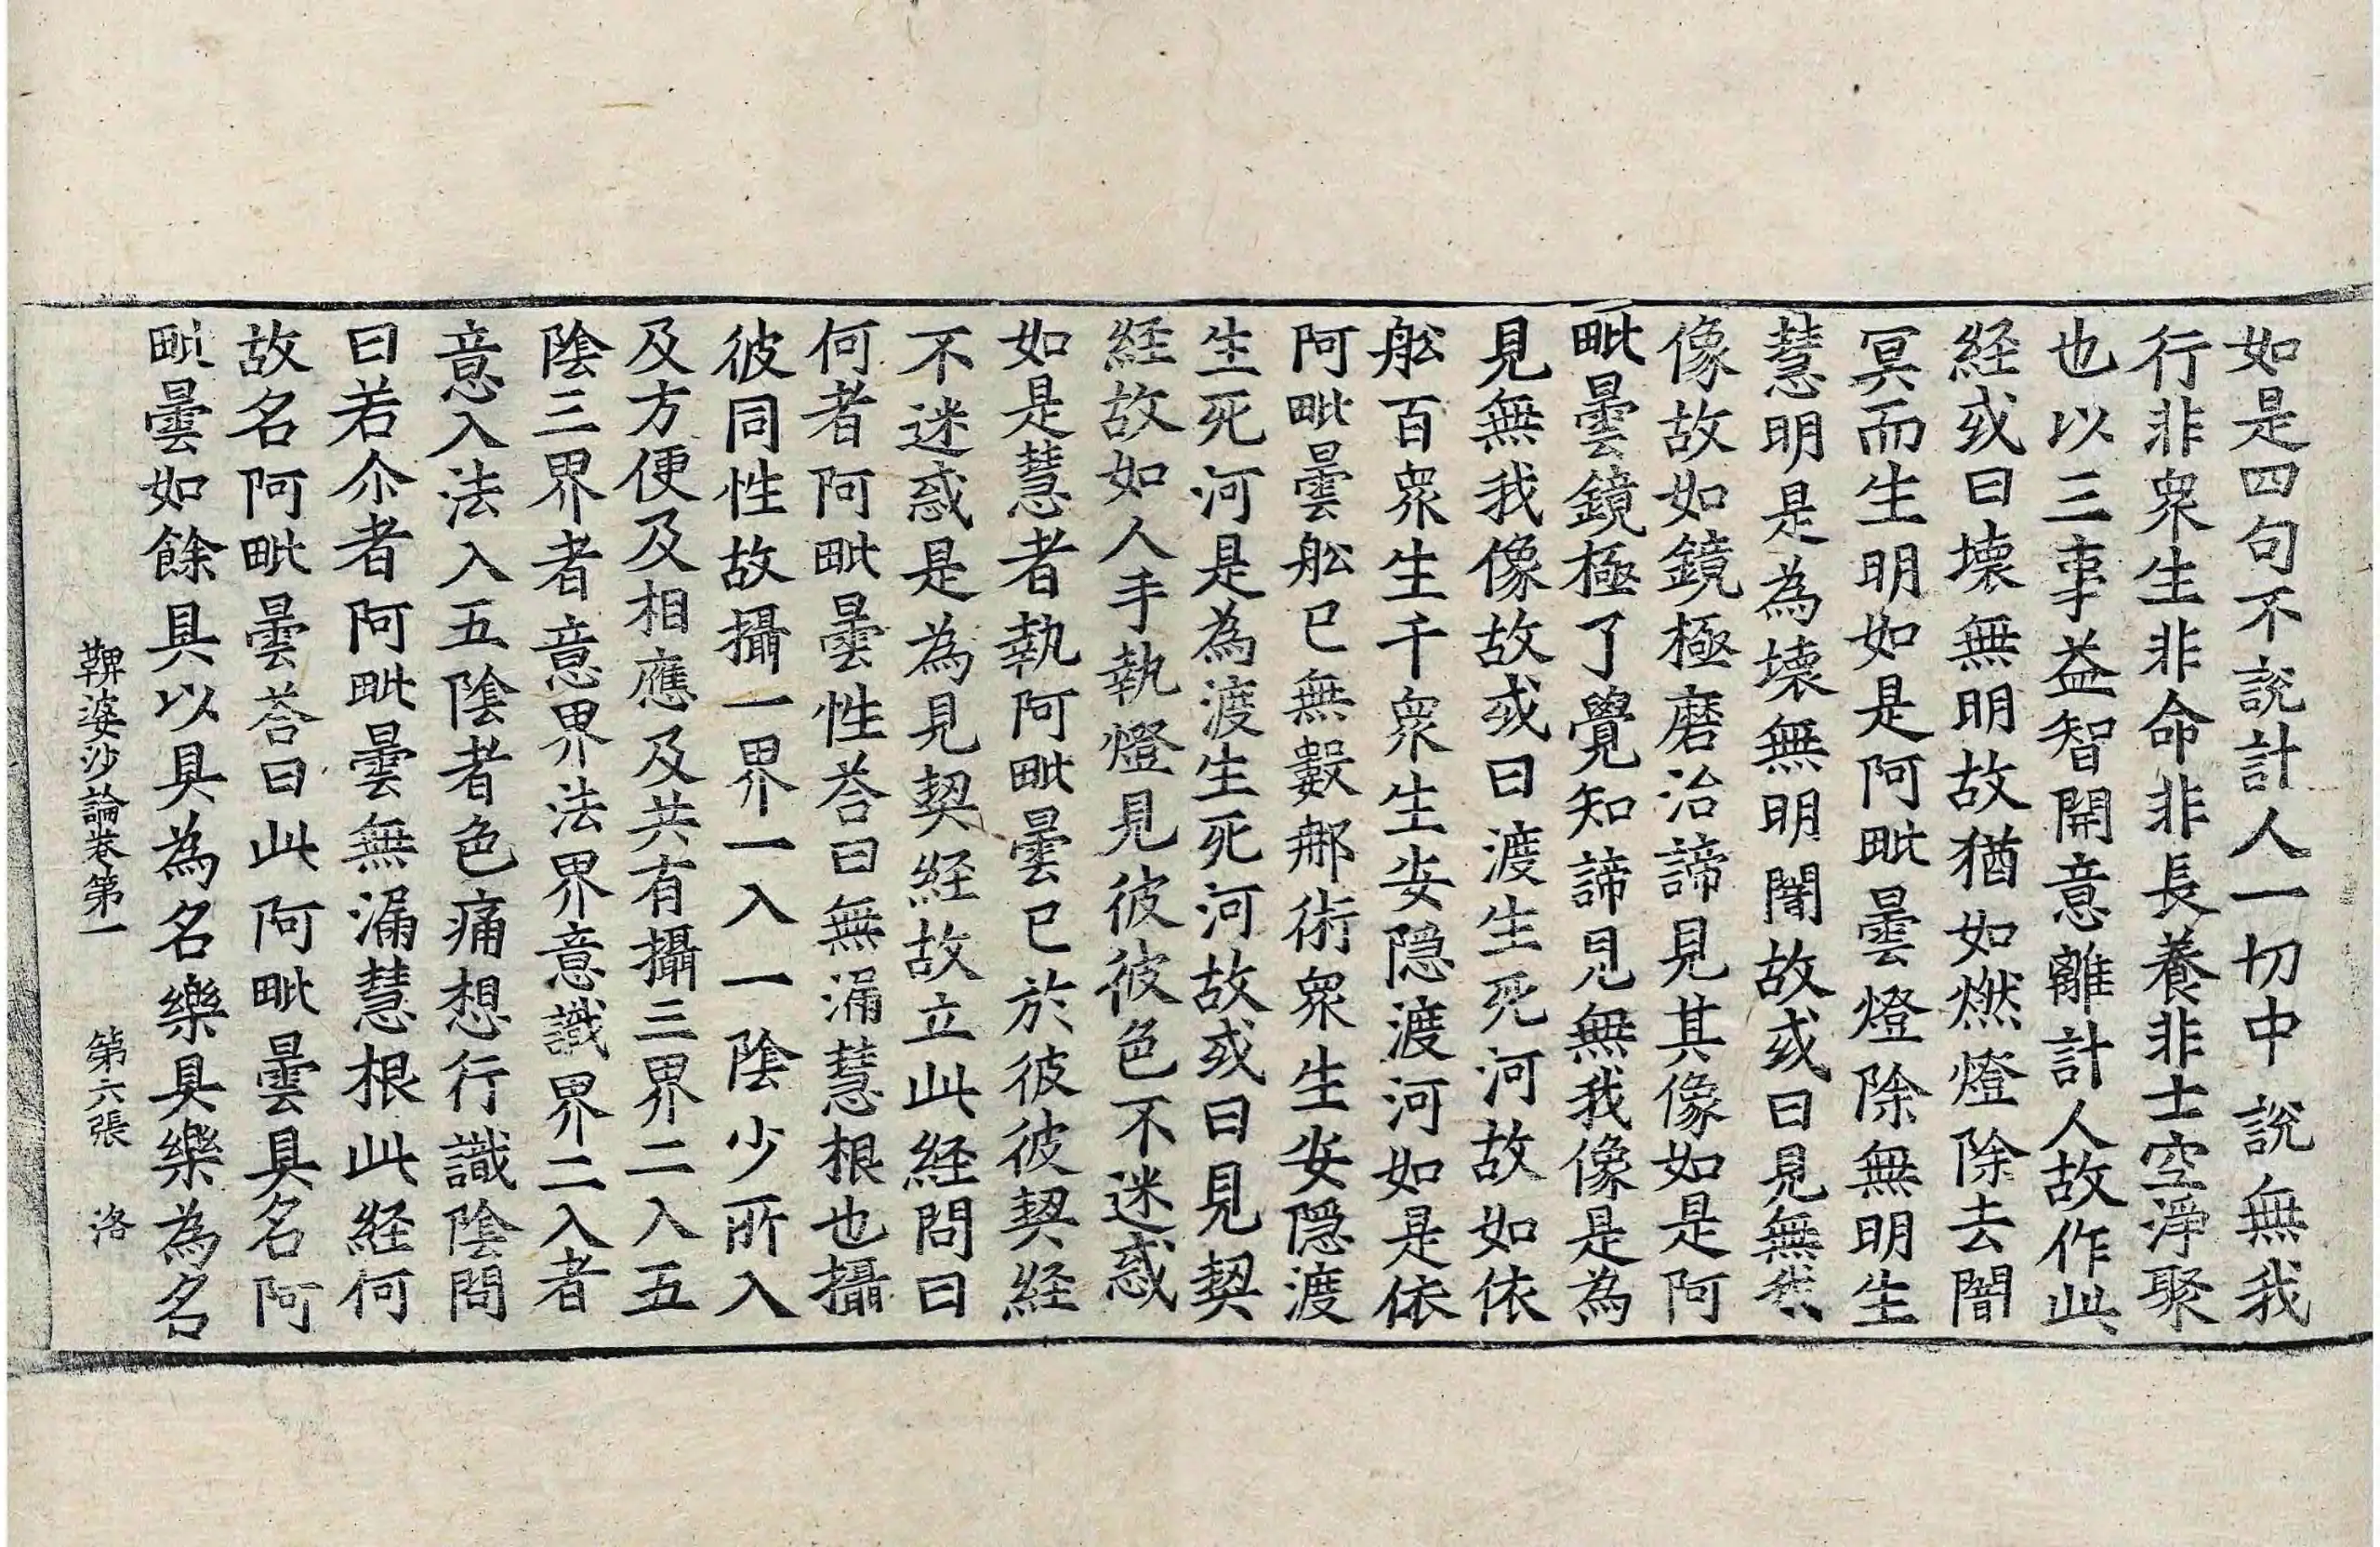 如是四句不說計人一切中說無我
行非衆生非命非長養非士空淨聚
也以三事益智開意離計人故作此
経或曰壞無明故猶如燃燈除去闇
冥而生明如是阿毗曇燈除無明生
慧明是為壞無明闇故或曰見無我
像故如鏡極磨治諦見其像如是阿
毗曇鏡極了覺知諦見無我像是為
見無我像故或曰渡生死河故如依
舩百衆生千衆生安隠渡河如是依
阿毗曇舩已無數那術衆生安隠渡
生死河是為渡生死河故或曰見契
経故如人手執燈見彼彼色不迷惑
如是慧者執阿毗曇已於彼彼契経
不迷惑是為見契経故立此経問曰
何者阿毗曇性荅曰無漏慧根也攝
彼同性故攝一界一入一陰少所入
及方便及相應及共有攝三界二入五
陰三界者意界法界意識界二入者
意入法入五陰者色痛想行識陰問
曰若尒者阿毗曇無漏慧根此経何
故名阿毗曇荅曰此阿毗曇具名阿
毗曇如餘具以具為名樂具樂為名
鞞婆沙論巻第一　第六張　洛